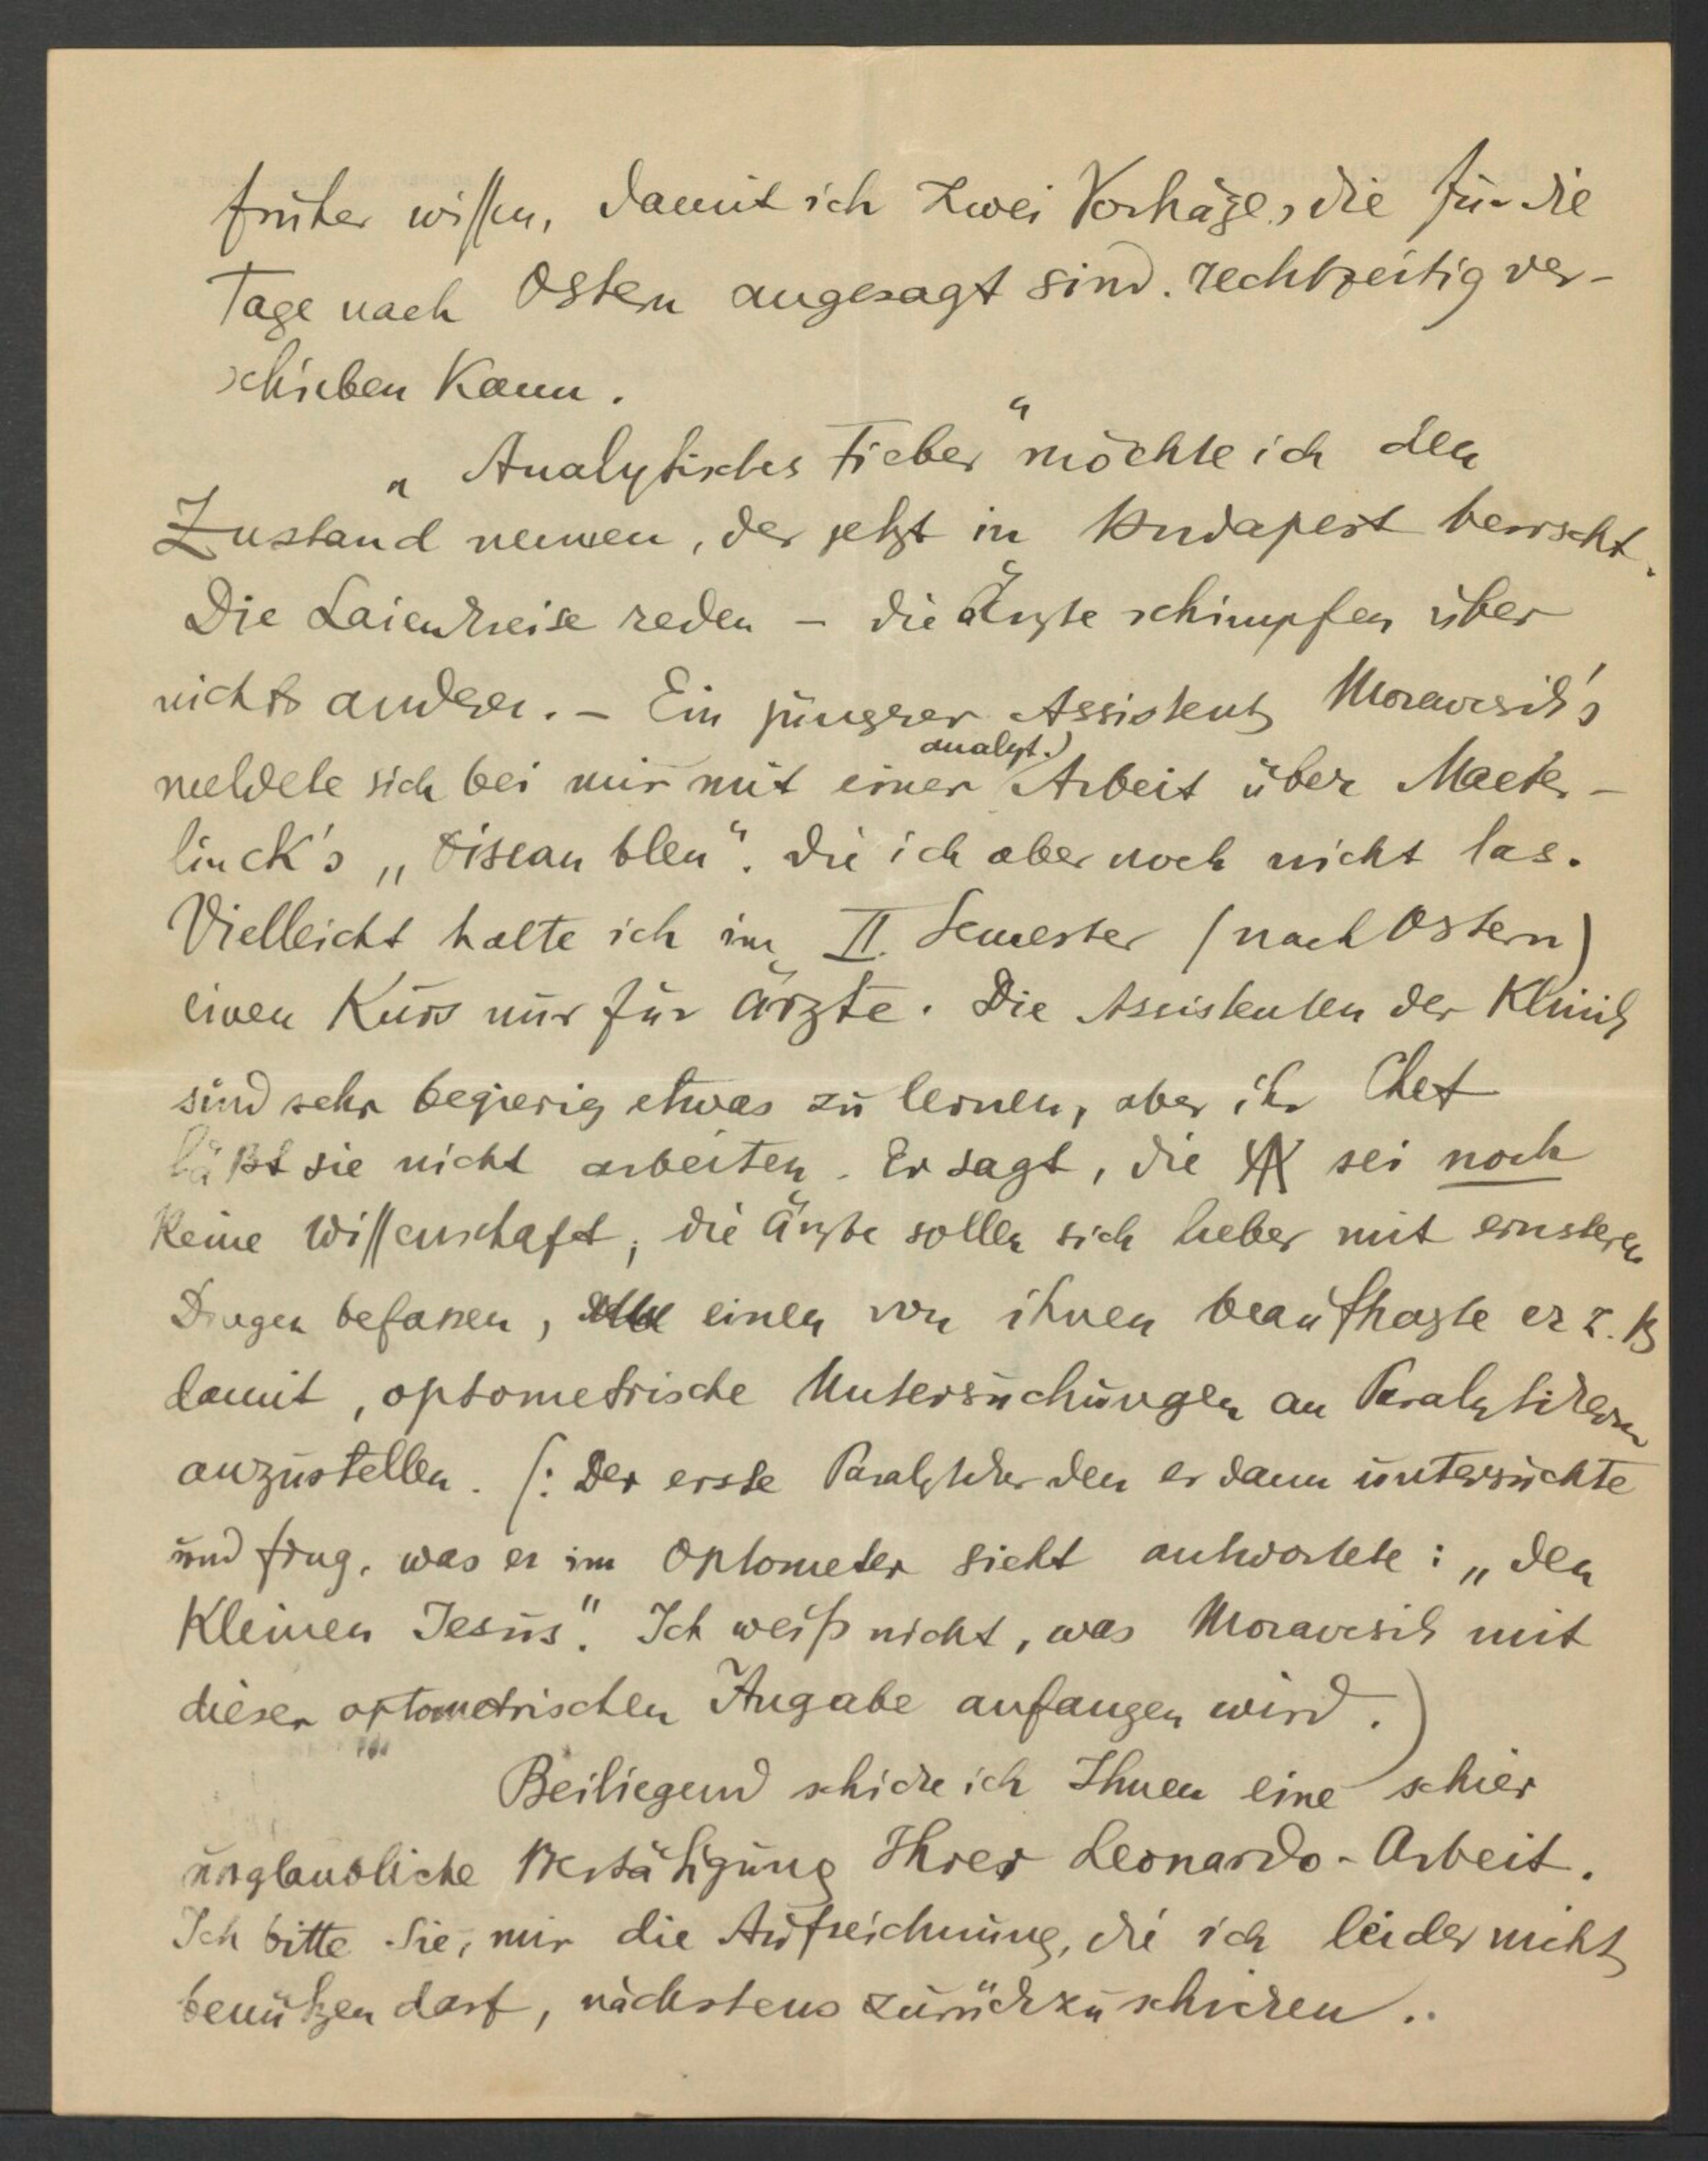 früher wissen, damit ich zwei Vorträge, die für die
Tage nach Ostern angesagt sind. rechtzeitig ver-
schieben kann.
„Analytisches Fieber“ möchte ich den
Zustand nennen, der jetzt in Budapest herrscht.
Die Laienkreise reden – die Ärzte schimpfen über
nichts anderes. – Ein jüngerer Assistent Moravcsik's
meldete sich bei mir mit einer Arbeit über Maeter-
analyt.)
linck's „Oiseau bleu“. die ich aber noch nicht las.
Vielleicht halte ich im II. Semester (nach Ostern)
einen Kurs nur für Ärzte. Die Assistenten der Klinik
sind sehr begierig etwas zu lernen, aber ihr Chef
läßt sie nicht arbeiten. Er sagt, die ΨA sei noch
keine Wissenschaft, die Ärzte sollen sich lieber mit ernsteren
Dingen befassen, einen von ihnen beauftragte er z. B
damit, optometrische Untersuchungen an Paralytikern
anzustellen. (: Der erste Paralytiker den er dann untersuchte
und frug, was er im Optometer sieht antwortete: „den
kleinen Jesus“. Ich weiß nicht, was Moravcsik mit
dieser optometrischen Angabe anfangen wird.)
Beiliegend schicke ich Ihnen eine schier
unglaubliche Bestätigung Ihrer Leonardo-Arbeit.
Ich bitte Sie, mir die Aufzeichnung, die ich leider nicht
benützen darf, nächstens zurückzuschicken..